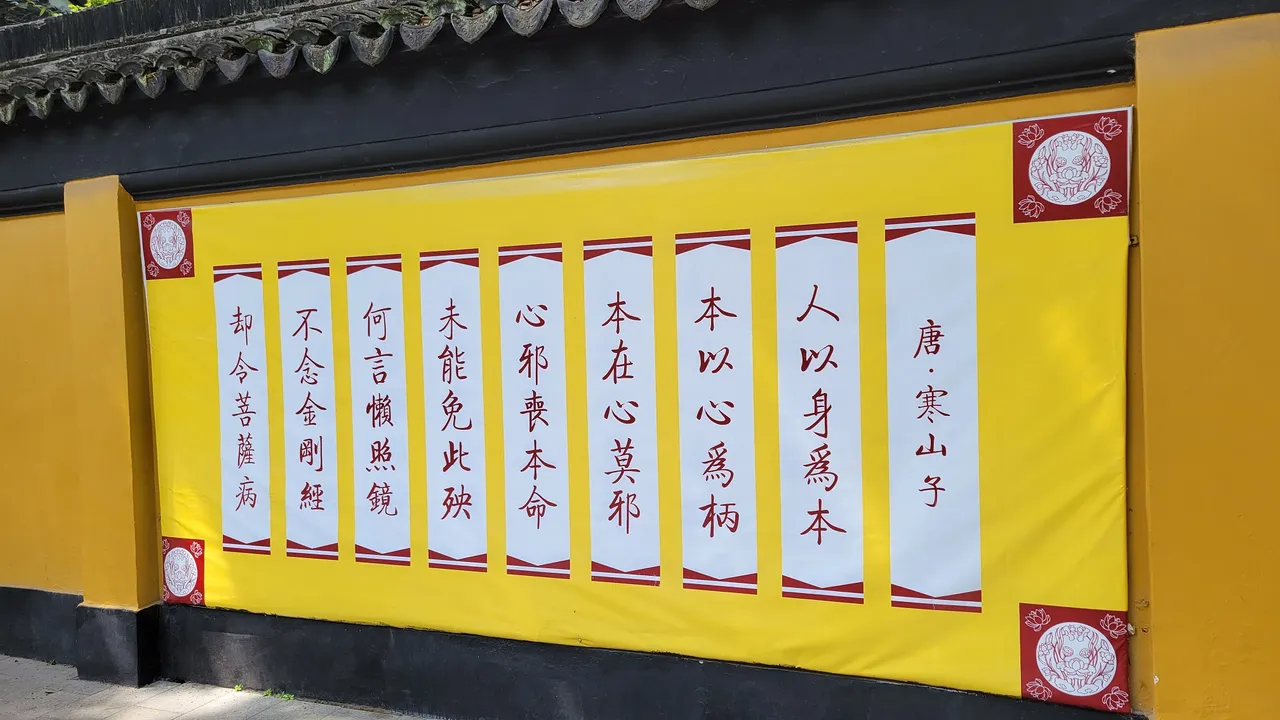 唐·寒山子
人以身爲本
本以心爲柄
本在心莫邪
心邪喪本命
未能免此殃
何言懶照鏡
不念金剛經
却令菩薩病